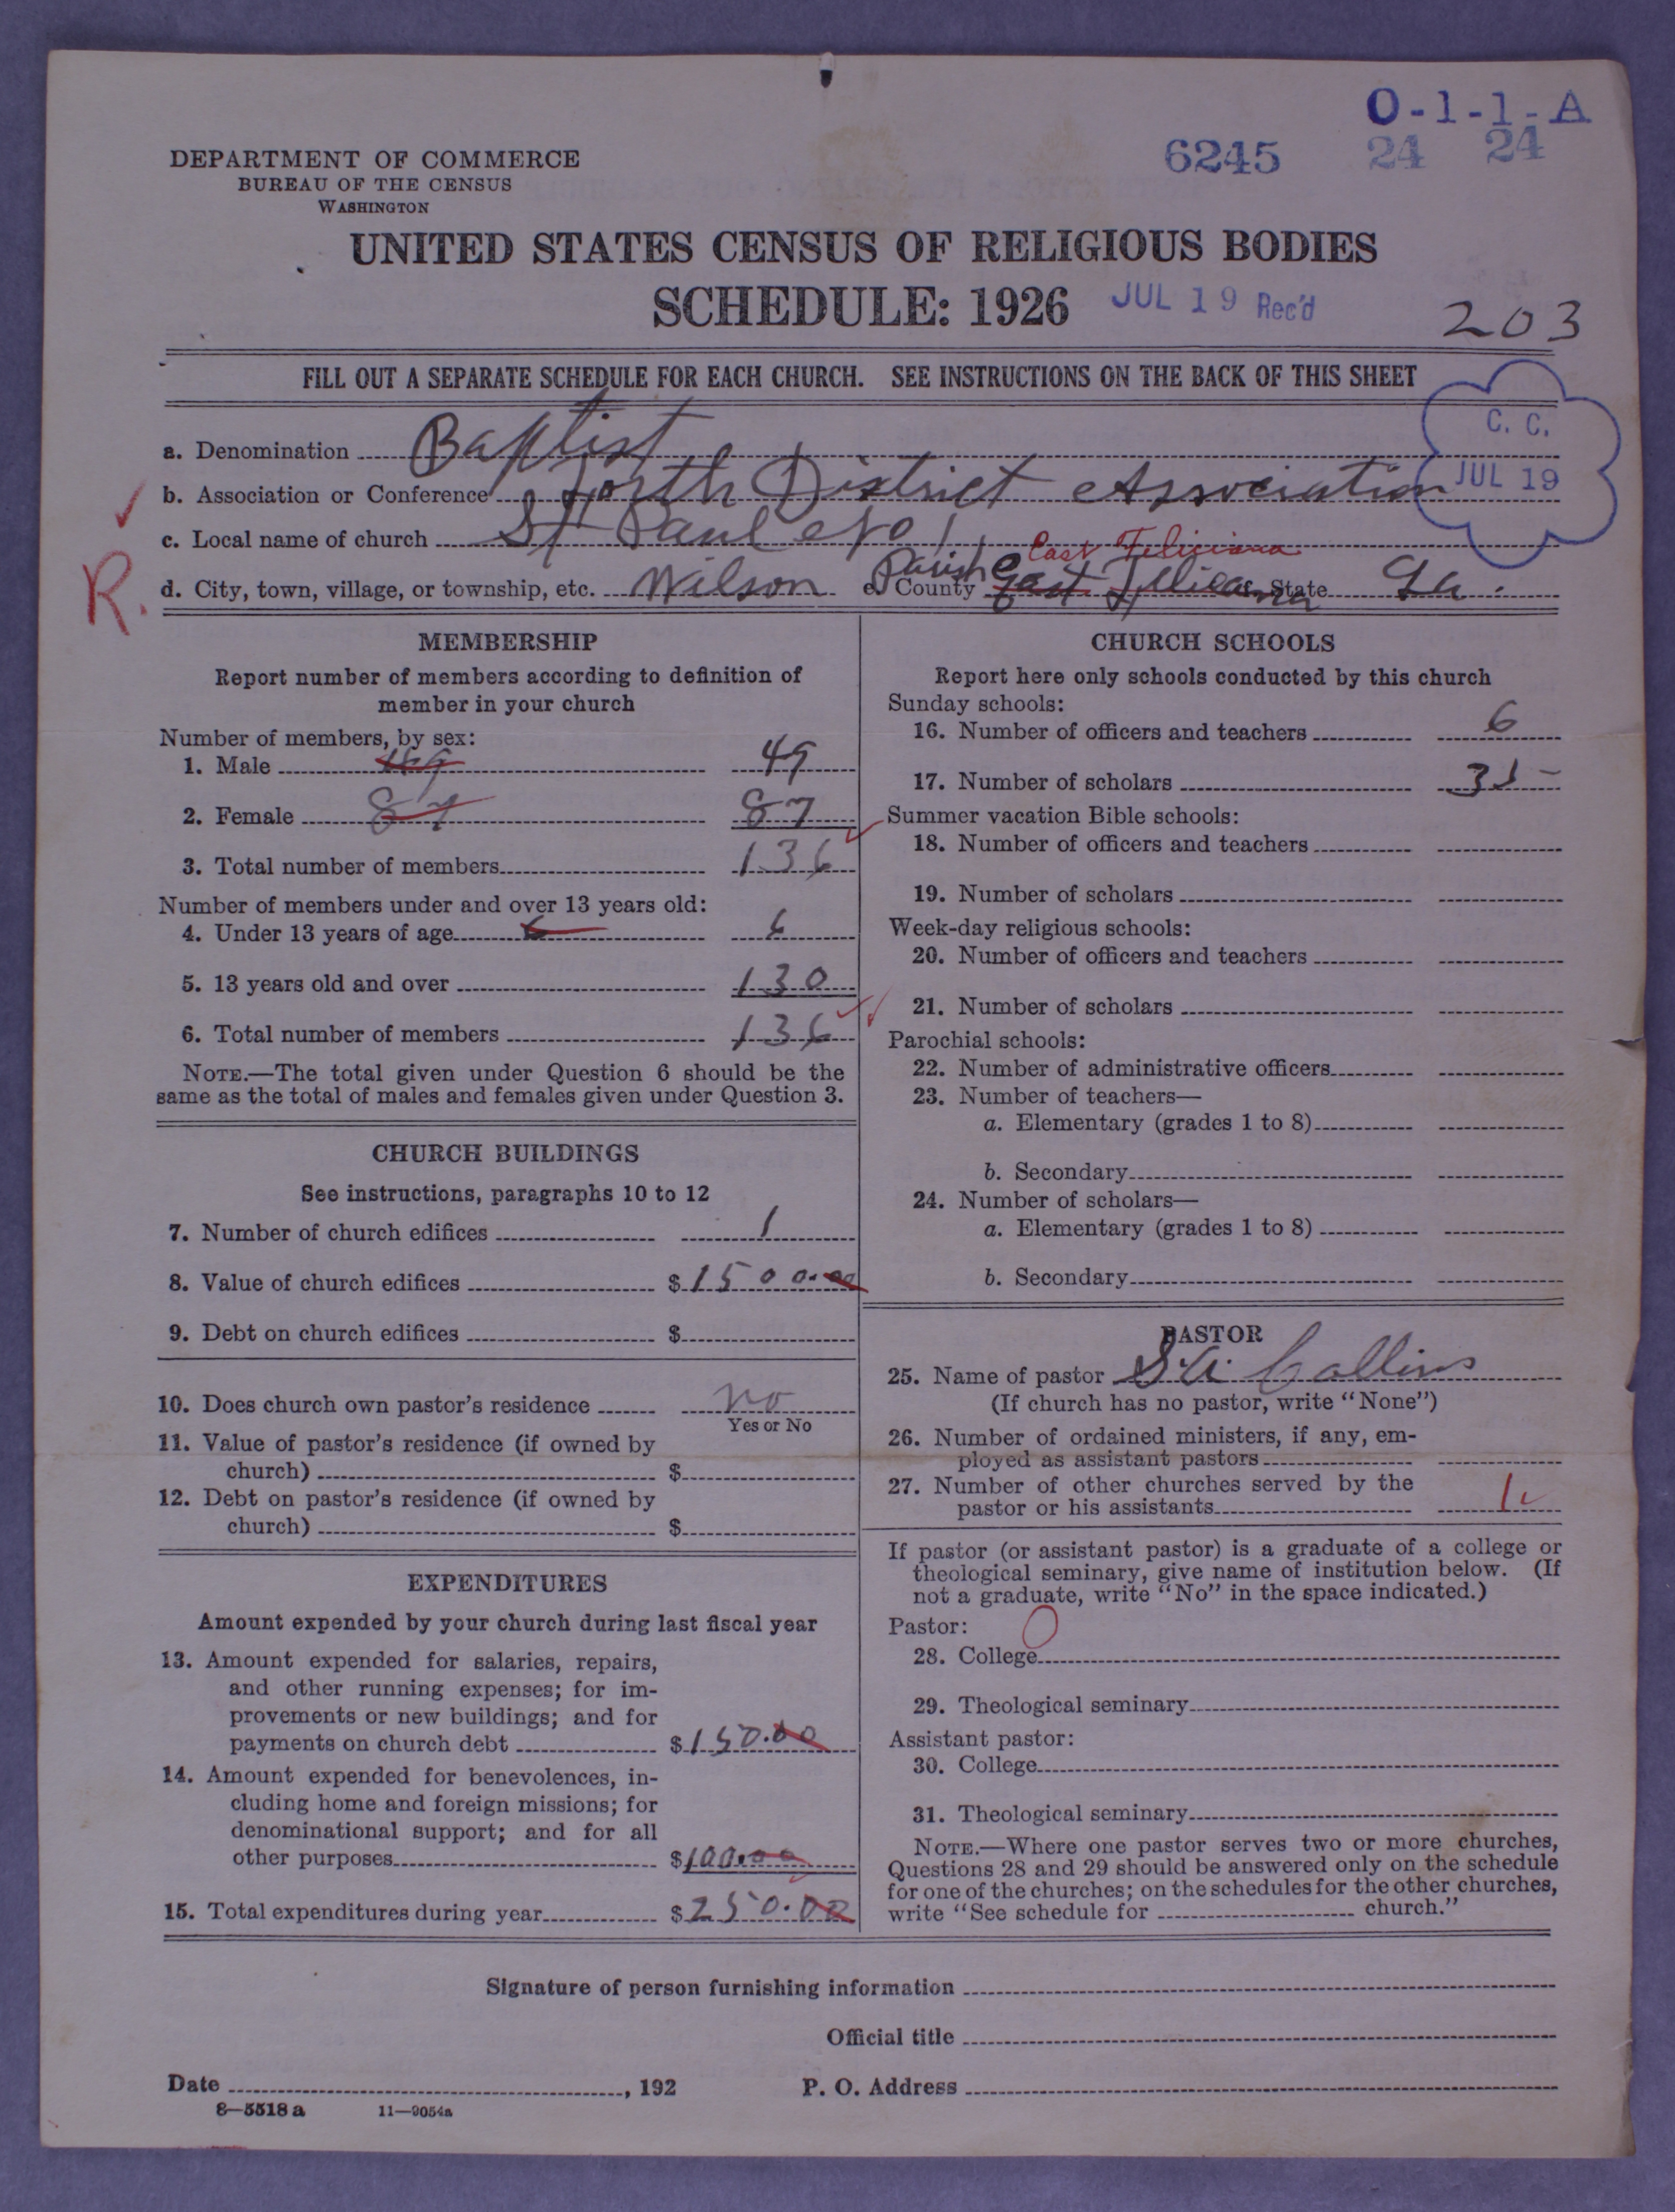 O-1-1-A
6245 24 24
DEPARTMENT OF COMMERCE
BUREAU OF THE CENSUS
WASHINGTON
UNITED STATES CENSUS OF RELIGIOUS BODIES
SCHEDULE: 1926 JUL 19 Rec'd
203
FILL OUT A SEPARATE SCHEDULE FOR EACH CHURCH. SEE INSTRUCTIONS ON THE BACK OF THIS SHEET
C. C.
JUL 19
a. Denomination Baptist
b. Association or Conference District Association
c. Local name of church St Paul No 1
East Feliciana
R. d. City, town, village, or township, etc. Wilson e. County Parish East Feliciana f. State La.
MEMBERSHIP
Report number of members according to definition of
member in your church
Number of members, by sex:
1. Male 49 49
2. Female 87 87
3. Total number of members 136
Number of members under and over 13 years old:
4. Under 13 years of age 6 6
5. 13 years old and over 130
6. Total number of members 136
NOTE.—The total given under Question 6 should be the
same as the total of males and females given under Question 3.
CHURCH BUILDINGS
See instructions, paragraphs 10 to 12
7. Number of church edifices 1
8. Value of church edifices $1500.00
9. Debt on church edifices $
10. Does church own pastor's residence no
Yes or No
11. Value of pastor's residence (if owned by
church) $
12. Debt on pastor's residence (if owned by
church) $
EXPENDITURES
Amount expended by your church during last fiscal year
13. Amount expended for salaries, repairs,
and other running expenses; for im-
provements or new buildings; and for
payments on church debt $150.00
14. Amount expended for benevolences, in-
cluding home and foreign missions; for
denominational support; and for all
other purposes $100.00
15. Total expenditures during year $250.00
CHURCH SCHOOLS
Report here only schools conducted by this church
Sunday schools:
16. Number of officers and teachers 6
17. Number of scholars 35
Summer vacation Bible schools:
18. Number of officers and teachers
19. Number of scholars
Week-day religious schools:
20. Number of officers and teachers
21. Number of scholars
Parochial schools:
22. Number of administrative officers
23. Number of teachers—
a. Elementary (grades 1 to 8)
b. Secondary
24. Number of scholars—
a. Elementary (grades 1 to 8)
b. Secondary
PASTOR
25. Name of pastor S. A. Collins
(If church has no pastor, write "None")
26. Number of ordained ministers, if any, em-
ployed as assistant pastors
27. Number of other churches served by the
pastor or his assistants 1
If pastor (or assistant pastor) is a graduate of a college or
theological seminary, give name of institution below. (If
not a graduate, write "No" in the space indicated.)
Pastor: 0
28. College
29. Theological seminary
Assistant pastor:
30. College
31. Theological seminary
NOTE.—Where one pastor serves two or more churches,
Questions 28 and 29 should be answered only on the schedule
for one of the churches; on the schedules for the other churches,
write "See schedule for church."
Signature of person furnishing information
Official title
Date , 192 P. O. Address
8—5518 a 11—9054a